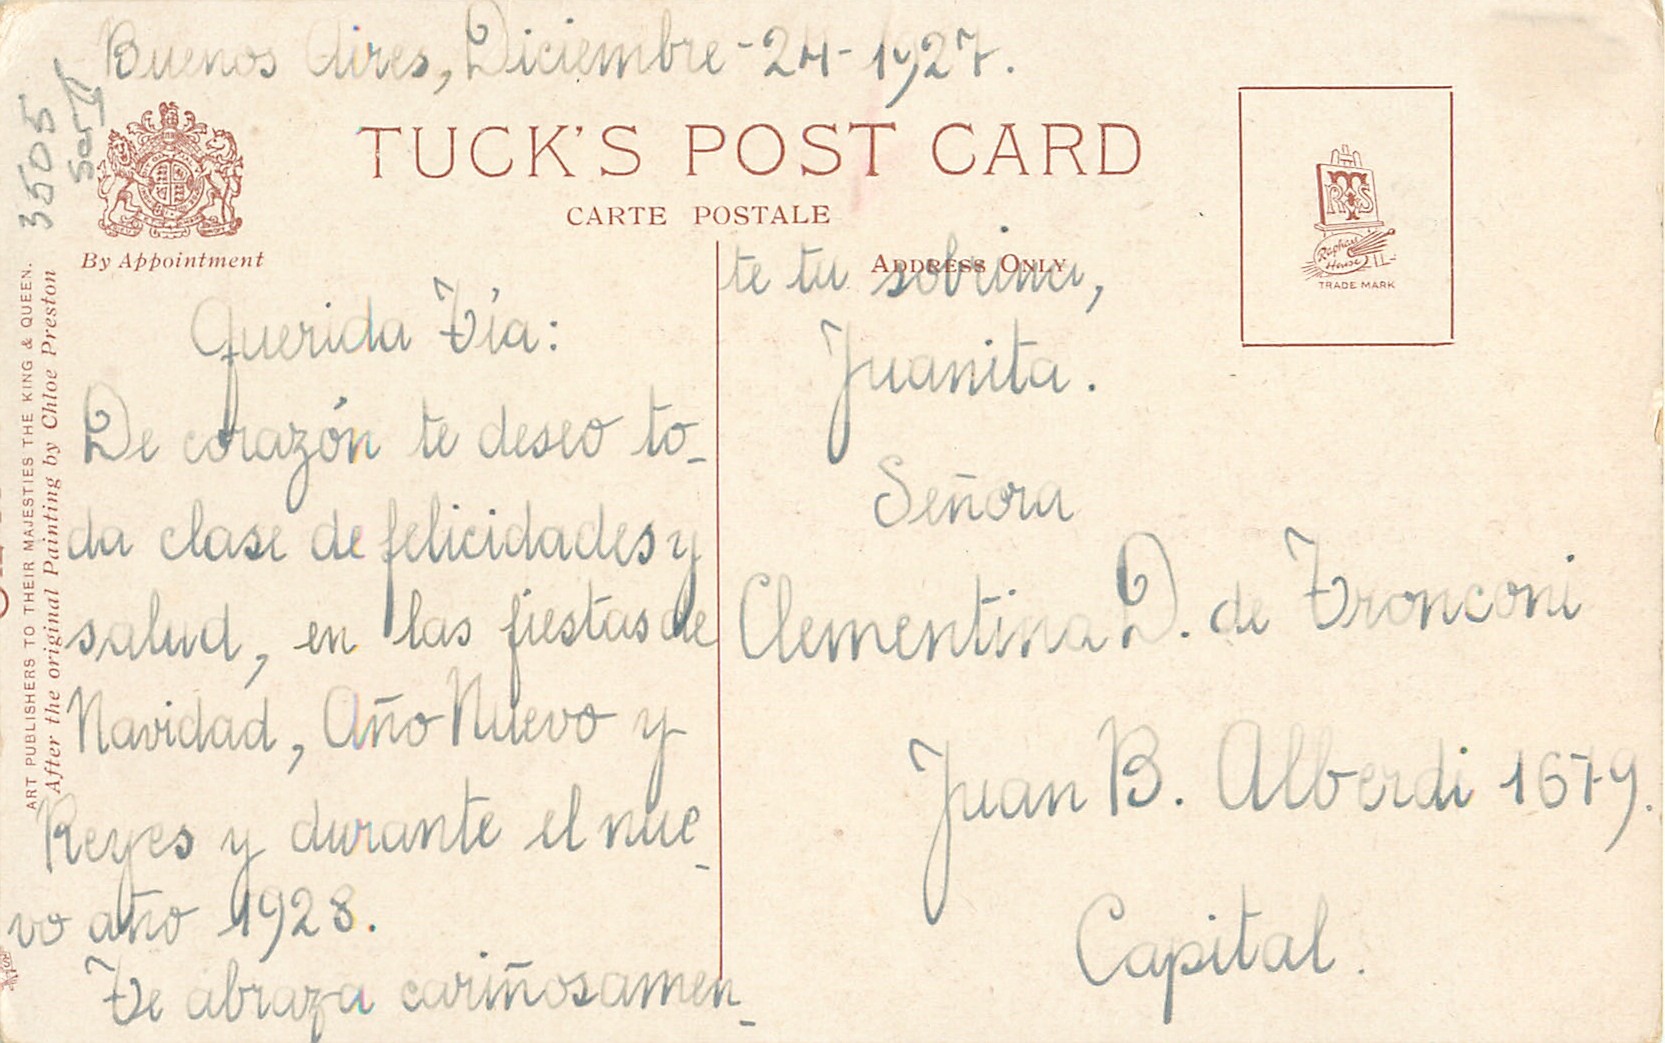 Buenos Aires, Diciembre-24-1927.
3505
TUCK'S POST CARD
CARTE POSTALE
By Appointment
ADDRESS ONLY
RTS
Raphael
House
TRADE MARK
ART PUBLISHERS TO THEIR MAJESTIES THE KING & QUEEN.
After the original Painting by Chloe Preston
Querida Tía:
De corazón te deseo to_
da clase de felicidades y
salud, en las fiestas de
Navidad, Año Nuevo y
Reyes y durante el nue_
vo año 1928.
Te abraza cariñosamen_
te tu sobrina,
Juanita.
Señora
Clementina D. de Tronconi
Juan B. Alberdi 1679.
Capital.